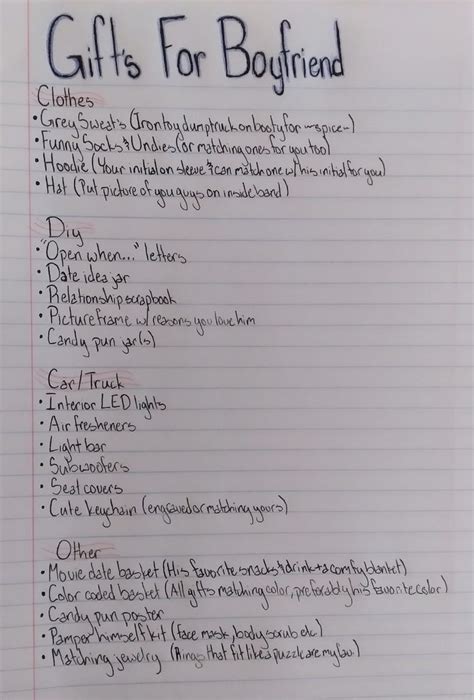 Gift's For Boyfriend
Clothes
• Grey Sweat's (Iron toy dump truck on booty for ~spice~)
• Funny Socks & Undies (or matching ones for you too)
• Hoodie (Your initial on sleeve & can match one w/ his initial for you)
• Hat (Put picture of you guys on inside band)
Diy
• "Open when..." letters
• Date idea jar
• Relationship scrapbook
• Picture frame w/ reasons you love him
• Candy pun jar(s)
Car/Truck
• Interior LED lights
• Air fresheners
• Light bar
• Subwoofers
• Seat covers
• Cute keychain (engraved or matching yours)
Other
• Movie date basket (His favorite snacks & drink + a comfy blanket)
• Color coded basket (All gifts matching color, preferably his favorite color)
• Candy pun poster
• Pamper himself kit (face mask, body scrub etc.)
• Matching jewelry (Rings that fit like a puzzle are my fav)